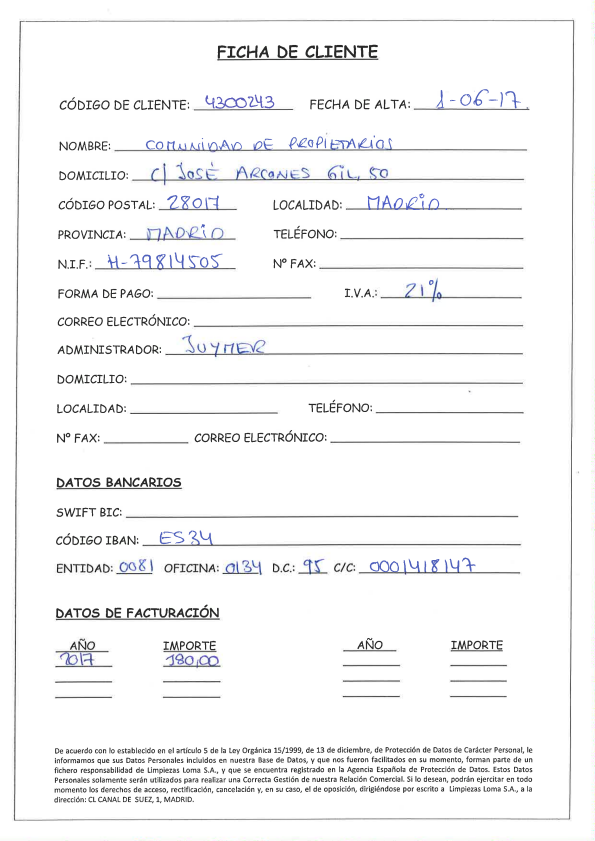 FICHA DE CLIENTE
CÓDIGO DE CLIENTE: 4300243 FECHA DE ALTA: 1-06-17.
NOMBRE: COMUNIDAD DE PROPIETARIOS
DOMICILIO: C/ JOSÉ ARCONES GIL, 50
CÓDIGO POSTAL: 28017 LOCALIDAD: MADRID
PROVINCIA: MADRID TELÉFONO:
N.I.F.: H-79814505 Nº FAX:
FORMA DE PAGO: I.V.A.: 21%
CORREO ELECTRÓNICO:
ADMINISTRADOR: JUYMER
DOMICILIO:
LOCALIDAD: TELÉFONO:
Nº FAX: CORREO ELECTRÓNICO:
DATOS BANCARIOS
SWIFT BIC:
CÓDIGO IBAN: ES34
ENTIDAD: 0081 OFICINA: 0134 D.C.: 95 C/C: 0001418147
DATOS DE FACTURACIÓN
AÑO IMPORTE AÑO IMPORTE
2017 180,00
De acuerdo con lo establecido en el artículo 5 de la Ley Orgánica 15/1999, de 13 de diciembre, de Protección de Datos de Carácter Personal, le
informamos que sus Datos Personales incluidos en nuestra Base de Datos, y que nos fueron facilitados en su momento, forman parte de un
fichero responsabilidad de Limpiezas Loma S.A., y que se encuentra registrado en la Agencia Española de Protección de Datos. Estos Datos
Personales solamente serán utilizados para realizar una Correcta Gestión de nuestra Relación Comercial. Si lo desean, podrán ejercitar en todo
momento los derechos de acceso, rectificación, cancelación y, en su caso, el de oposición, dirigiéndose por escrito a Limpiezas Loma S.A., a la
dirección: CL CANAL DE SUEZ, 1, MADRID.